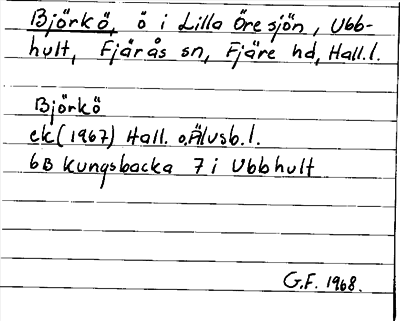 Björkö, ö i Lilla Öresjön, Ubb-
hult, Fjärås sn, Fjäre hd, Hall.l.
Björkö
ek (1967) Hall. o. Älvsb.l.
6B Kungsbacka 7 i Ubbhult
G.F. 1968.